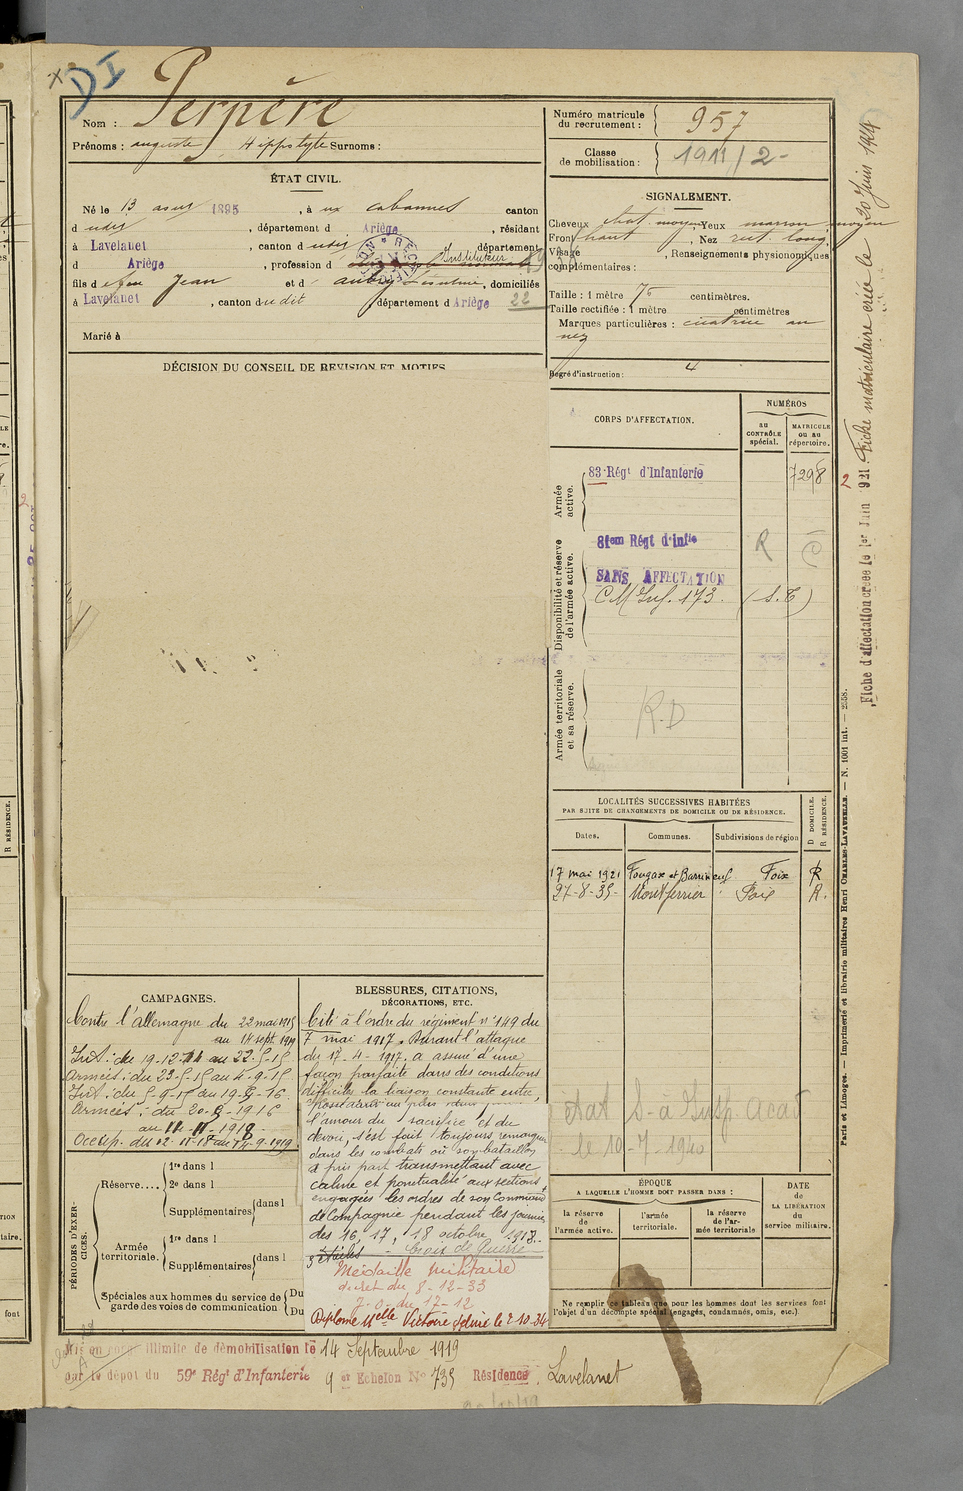 DI
Nom : Perpère
Prénoms : auguste, Hippolyte Surnoms :
Numéro matricule du recrutement : 957
Classe de mobilisation : 1911/2-
ÉTAT CIVIL.
Né le 13 aout 1895, à ux cabannes canton
d udit, département d Ariège, résidant
à Lavelanet, canton d udit, département
d Ariège, profession d Instituteur
fils d e feu Jean et d, domiciliés
à Lavelanet, canton d udit département d Ariège
22
Marié à
SIGNALEMENT.
Cheveux chat. moyen, Yeux marron moyen
Front haut, Nez rect. long
Visage, Renseignements physionomiques
complémentaires :
Taille : 1 mètre 75 centimètres.
Taille rectifiée : 1 mètre centimètres
Marques particulières : cicatrice au
nez
Degré d'instruction : 4
DÉCISION DU CONSEIL DE REVISION ET MOTIFS
CORPS D'AFFECTATION.
NUMÉROS
au CONTRÔLE spécial.
MATRICULE ou au répertoire.
Armée active.
83e Régt d'Infanterie 7298
Disponibilité et réserve de l'armée active.
81em Régt d'Infie R
SANS AFFECTATION
C M Inf. 173. (S.C)
Armée territoriale et sa réserve.
R.D
LOCALITÉS SUCCESSIVES HABITÉES
PAR SUITE DE CHANGEMENTS DE DOMICILE OU DE RÉSIDENCE.
Dates. Communes. Subdivisions de région
D DOMICILE.
R RÉSIDENCE.
17 mai 1921 Fougax et Barrineuf Foix R
27-8-35- Montferrier Foix R.
état S- à Insp. Acad
le 10-7-1940
CAMPAGNES.
Contre l'allemagne du 22 mai 1915
au 14 sept. 1919
Int : du 19-12-14 au 22-5-15
Armées : du 23-5-15 au 4-9-15
Int : du 5-9-15 au 19-9-16
Armées : du 20-9-1916
au 11-11-1918-
Occup. du 12-11-18 au 14-9-1919
BLESSURES, CITATIONS,
DÉCORATIONS, ETC.
Cité à l'ordre du régiment n° 149 du
7 mai 1917. Durant l'attaque
du 17-4-1917, a assuré d'une
façon parfaite dans des conditions
difficiles la liaison constante entre
l'amour du sacrifice et du
devoir, s'est fait toujours remarquer
dans les combats où son bataillon
a pris part transmettant avec
calme et ponctualité aux sections
engagées les ordres de son Command
de Compagnie pendant les journées
des 16, 17, 18 octobre 1918.
3 étoiles - Croix de Guerre
Médaille Militaire
décret du 8-12-33
J-O- du 17-12
Diplome Melle Victoire délivré le 2-10-34
PÉRIODES D'EXERCICES.
Réserve.... 1re dans l
2e dans l
Supplémentaires dans l
Armée territoriale. 1re dans l
Supplémentaires dans l
Spéciales aux hommes du service de garde des voies de communication Du
Du
ÉPOQUE
A LAQUELLE L'HOMME DOIT PASSER DANS :
la réserve de l'armée active.
l'armée territoriale.
la réserve de l'armée territoriale
DATE
de
LA LIBÉRATION
du
service militaire.
Ne remplir ce tableau que pour les hommes dont les services font
l'objet d'un décompte spécial (engagés, condamnés, omis, etc.).
Mis en congé illimité de démobilisation le 14 Septembre 1919
par le dépôt du 59e Régt d'Infanterie 9 er Echelon No 735 Résidence, Lavelanet
Fiche d'affectation créée le 1er Juin 1921. Fiche matriculaire créée le 20 Juin 1924
2
Paris et Limoges. — Imprimerie et librairie militaires Henri CHARLES-LAVAUZELLE. — N. 1001 int. — 2558.